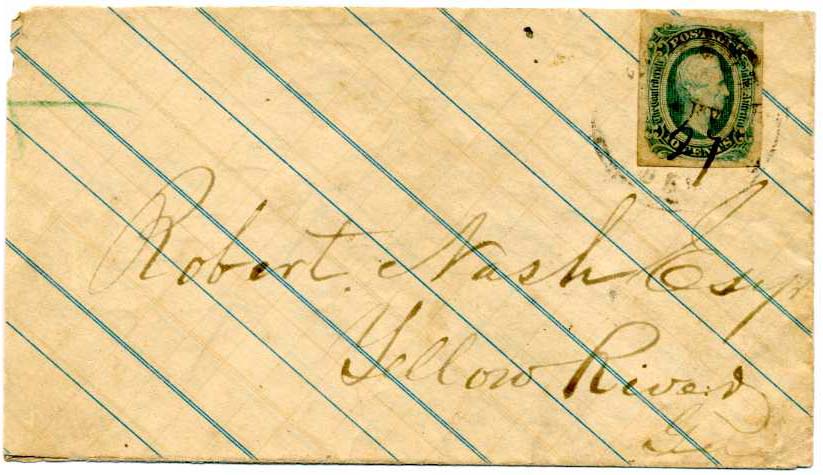 POSTAGE
The Confederate
States of America
TEN CENTS
Robert Nash Esqr
Yellow River
Ga